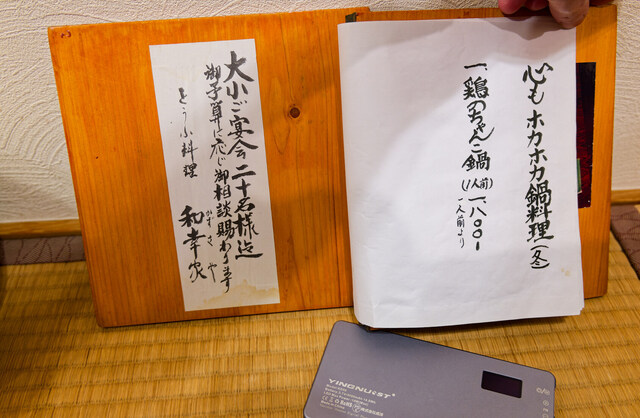 心も ホカホカ鍋料理(冬)
一、鶏のちゃんこ鍋(1人前)一八〇〇-
一人前より
大小ご宴会二十名様迄
御予算に応じ御相談賜わります
とうふ料理 和幸家
かずさや
YINGNUOST